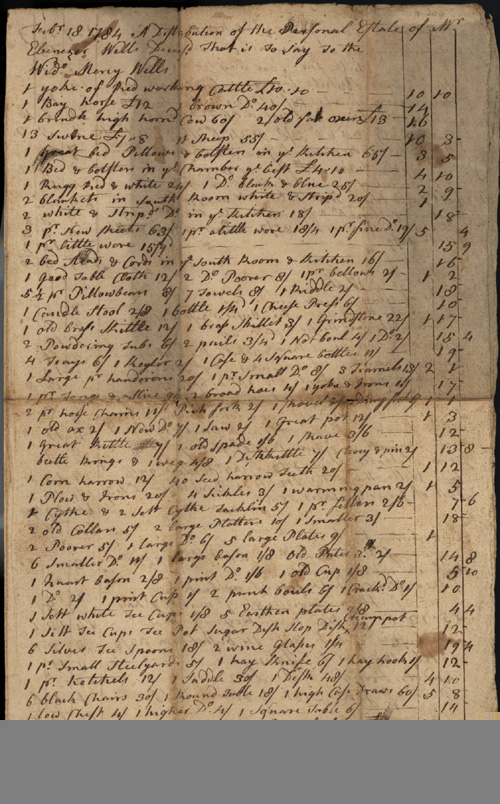 Febr 18 1784 A Distribution of the Personal Estate of Mr
Ebenezer Wells Decesd That is to say to the
Wido Mercy Wells
1 yoke of Red working Cattle £10..10 10 10
1 Bay horse £12 Brown Do 40/ 14
1 brindle high hornd Cow 60/ 2 old fat oxen £13 16
13 Swine £7..8 sheep 55/ 10 3
1 Great bed Pillows & bolsters in ye Kitchen 65/ 3 5
1 Bed & bolsters in ye Chamber ye best £4..10 4 10
1 Rugg Red & white 24/ 1 Do black & blue 25/ 2 9
2 blankets in South Room white & Stripd 20/ 1
2 white & Stripd Do in ye Kitchen 18/ 18
3 pr New Sheets 63/ 1 pr a little wore 18/4 1 pr fine Do 19/ 5 4
1 pr little wore 15/9 15 9
2 bed Steads & Cords in ye South Room & Kitchen 16/ 16
1 good Table Cloth 12/ 2 Do Poorer 8/ 1 pr bellows 2/ 1 2
5½ pr Pillowbears 8/ 7 Towels 8/ 1 Riddle 2/ 18
1 Candle Stool 2/8 1 bottle 1/4 1 Cheese Press 6/ 10
1 old brass Skillet 12/ 1 brass Skillet 3/ 1 Grindstone 22/ 1 17
2 Powdering Tubs 6/ 2 pails 3/4 1 Nut bowl 4/ 1 Do 2/ 15 4
4 Trays 6/ 1 Keeler 2/ 1 Case & 4 Square bottles 11/ 19
1 Large pr handirons 20/ 1 pr Small Do 8/ 3 Tramels 13/ 2 1
1 pr Tongs & 2 broad hoes 4/ 1 yoke & Irons 4/ 17
2 pr horse Chains 14/ Pich fork 2/ 1 Shovel 2/ 1
1 old ax 2/ 1 New Do 7/ 1 Saw 2/ 1 Great pot 12/ 1 3
1 Great Kettle 1 old Spade 1/6 1 Shave 3/6 12
beetle Rings & 1 wedg 4/8 1 Dishkettle 7/ Clevy & pin 2/ 13 8
1 Corn harrow 12/ 40 Seed harrow Teeth 20/ 1 12
1 Plow & Irons 20/ 4 Sickles 3/ 1 warming pan 2/ 1 5
1 Cythe & 2 Sett Cythe Tacklin 5/ 1 pr fetters 2/6 7 6
2 old Collars 5/ 2 large Platters 10/ 1 Smaller 3/ 18
2 Poorer 5/ 1 large Do 6/ 5 large Plates 9/ 1
6 Smaller Do 11/ 1 large bason 1/8 Old Puter 3/ 2/ 14 8
1 Quart bason 2/8 1 print Do 1/6 1 old Cup 1/8 5 10
1 Do 2/ 1 print Cup 1/ 2 punch bowls 6/ 1 Crackd Do 1/ 10
1 Sett white Tee Cups 1/8 5 Earthen plates 2/8 4 4
1 Sett Tee Cups Tee Pot Sugar Dish Slop Dish creampot 12/ 12
6 Silver Tee Spoons 18/ 2 wine Glasses 1/4 19 4
1 pr Small Steelyards 5/ 1 hay Knife 6/ 1 hay hook 1/ 12
1 pr Hetchels 12/ 1 Saddle 30/ 1 Desk 48/ 4 10
6 black Chairs 30/ 1 Round Table 18/ 1 high Case Draws 60/ 5 8
1 low Chest 4/ 1 higher Do 4/ 1 Square Table 6/ 14